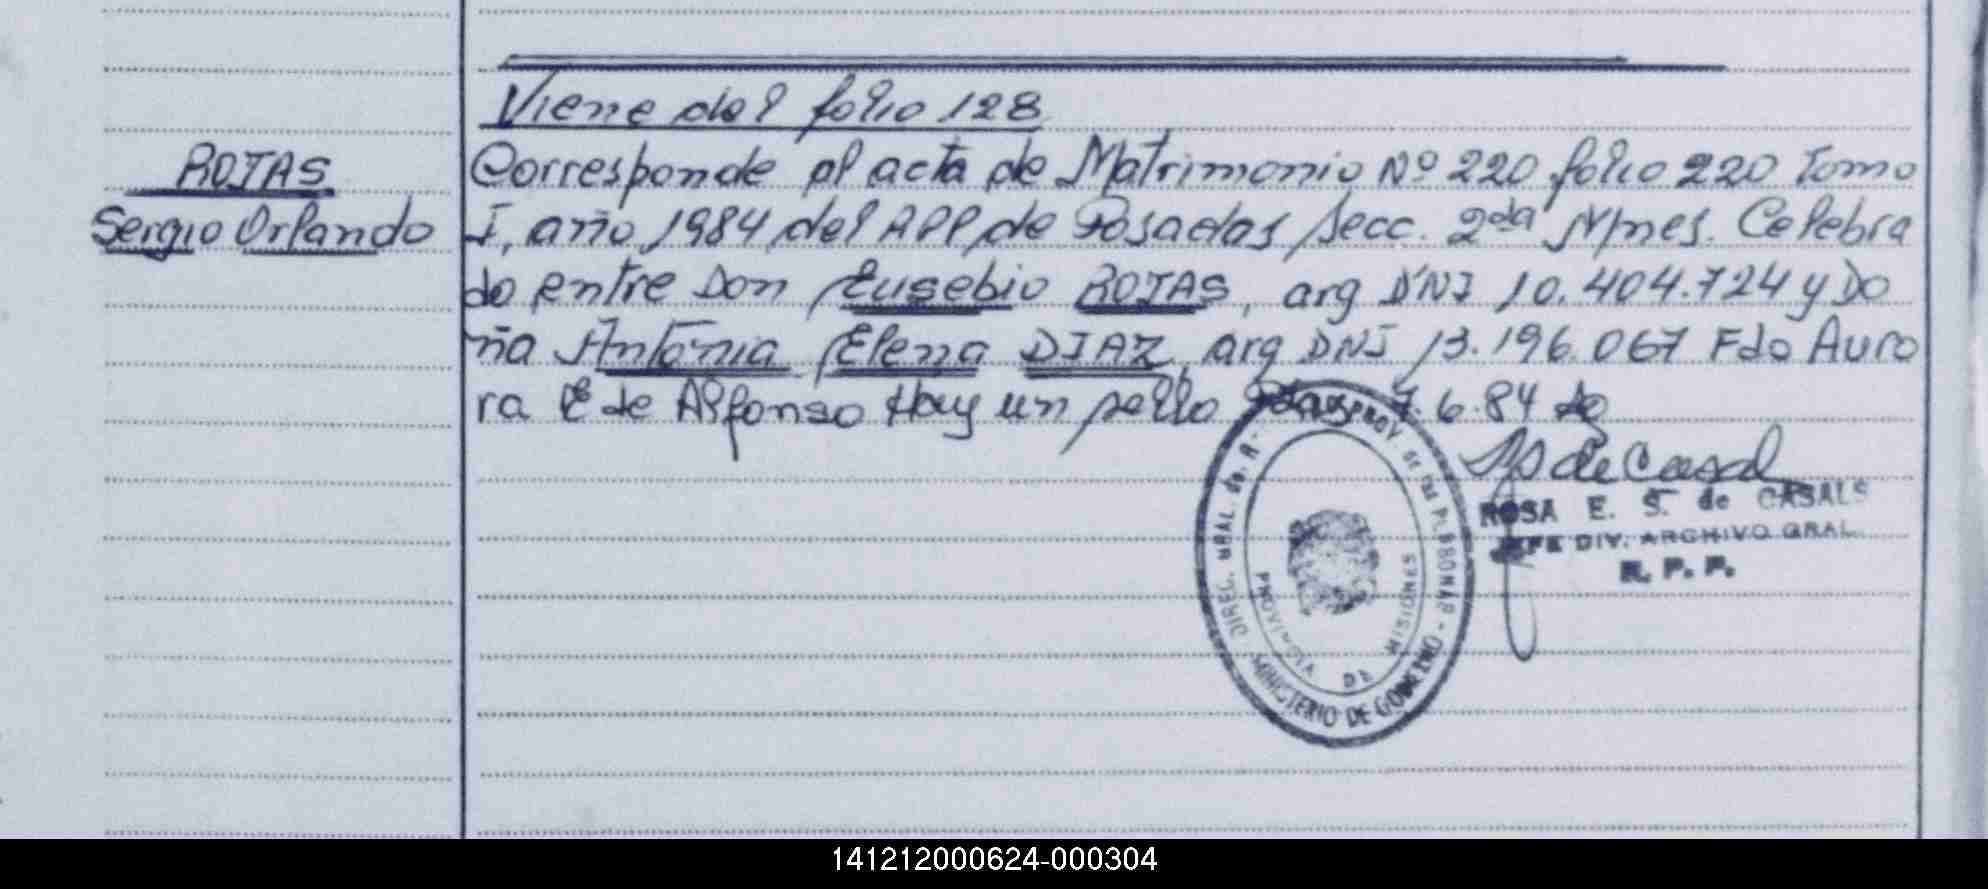 Viene del folio 128
ROJAS
Sergio Orlando
Corresponde al acta de Matrimonio Nº 220 folio 220 Tomo
I, año 1984 del RPP de Posadas Secc. 2da Mnes. Celebra
do entre Don Eusebio ROJAS, arg DNI 10.404.724 y Do
ña Antonia Elena DIAZ, arg DNI 13.196.067 Fdo Auro
ra E de Alfonso Hay un sello 7.6.84
de Casal
ROSA E. S. de CASALS
JEFE DIV. ARCHIVO GRAL.
R. P. P.
DIREC. GRAL. de PROV. de las
MINISTERIO DE GOBIERNO
PROVINCIA DE MISIONES
141212000624-000304